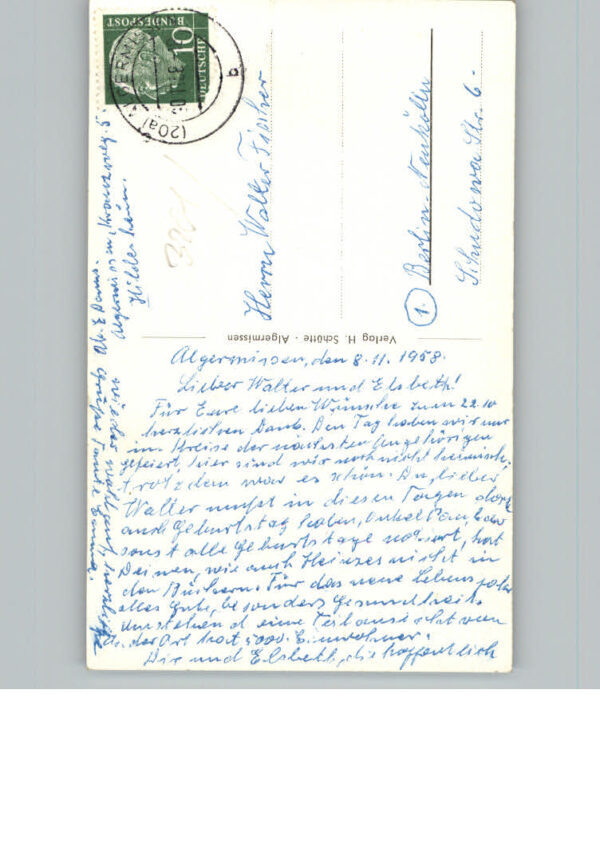 DEUTSCHE
BUNDESPOST
10
(20a)
b
Herrn Walter Fischer
1. Berlin-Neukölln
Schudowa Str. 6.
Abs. E. Danns.
Algermissen, Kranzweg. 5.
Hildesheim.
Verlag H. Schütte · Algermissen
Algermissen, den 8.11.1958.
Lieber Walter und Elsbeth!
Für Eure lieben Wünsche zum 22.10
herzlichen Dank. Den Tag haben wir nur
im Kreise der nächsten Angehörigen
gefeiert, hier sind wir noch nicht heimisch,
trotzdem war es schön. Du, lieber
Walter mußt in diesen Tagen doch
auch Geburtstag haben, Onkel Paul, der
sonst alle Geburtstage notiert, hat
Deinen, wie auch Heinzes nicht in
den Büchern. Für das neue Lebensjahr
alles Gute, besonders Gesundheit.
Umstehend eine Teilansicht von
A. der Ort hat 5000. Einwohner.
Dir und Elsbeth, die hoffentlich
wieder wohlauf, herzliche
Grüße Tante Emma.